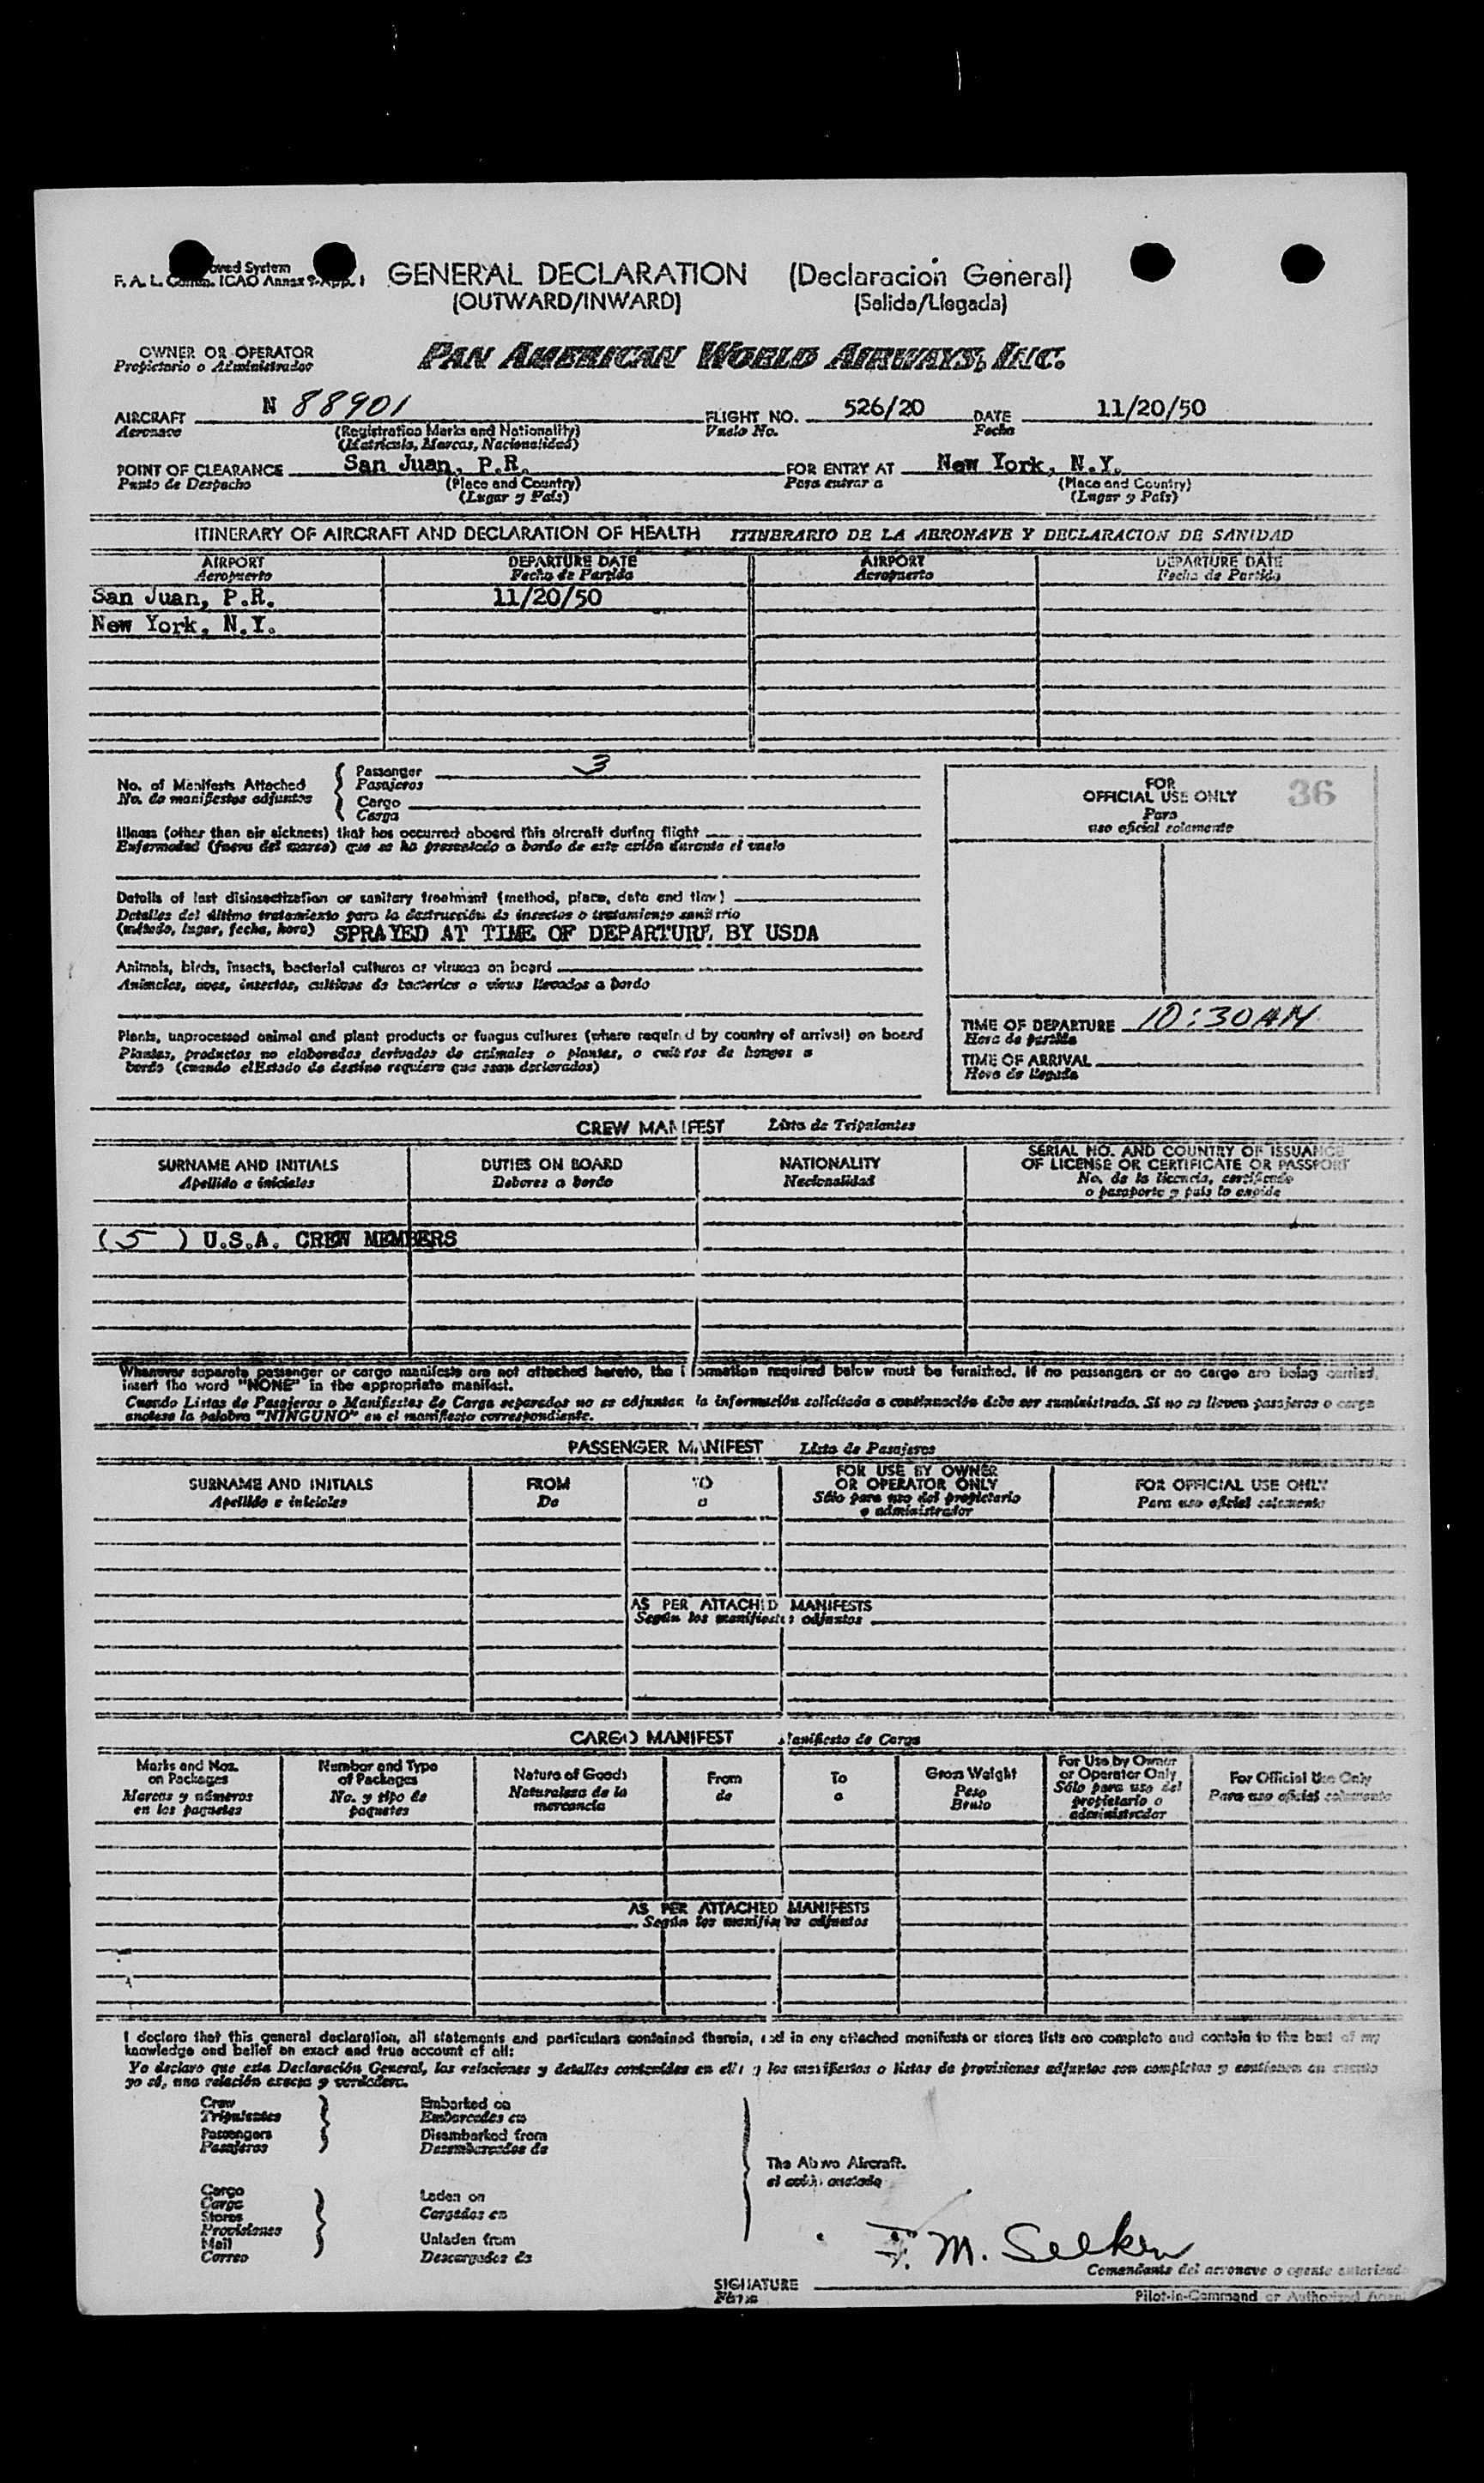 GENERAL DECLARATION (Declaración General)
oved System
F. A. L. Comm. ICAO Annex 9-App. 1
(OUTWARD/INWARD) (Salida/Llegada)
OWNER OR OPERATOR
Propietario o Administrador
PAN AMERICAN WORLD AIRWAYS, INC.
AIRCRAFT N 88901 FLIGHT NO. 526/20 DATE 11/20/50
Aeronave (Registration Marks and Nationality) Vuelo No. Fecha
(Matrícula, Marcas, Nacionalidad)
POINT OF CLEARANCE San Juan, P.R. FOR ENTRY AT New York, N.Y.
Punto de Despacho (Place and Country) Para entrar a (Place and Country)
(Lugar y País) (Lugar y País)
ITINERARY OF AIRCRAFT AND DECLARATION OF HEALTH ITINERARIO DE LA AERONAVE Y DECLARACION DE SANIDAD
AIRPORT DEPARTURE DATE AIRPORT DEPARTURE DATE
Aeropuerto Fecha de Partida Aeropuerto Fecha de Partida
San Juan, P.R. 11/20/50
New York, N.Y.
No. of Manifests Attached
No. de manifiestos adjuntos
Passenger 3
Pasajeros
Cargo
Carga
FOR
OFFICIAL USE ONLY 36
Para
uso oficial solamente
Illness (other than air sickness) that has occurred aboard this aircraft during flight
Enfermedad (fuera del mareo) que se ha presentado a bordo de este avión durante el vuelo
Details of last disinsectization or sanitary treatment (method, place, date and time)
Detalles del último tratamiento para la destrucción de insectos o tratamiento sanitario
(método, lugar, fecha, hora) SPRAYED AT TIME OF DEPARTURE BY USDA
Animals, birds, insects, bacterial cultures or viruses on board
Animales, aves, insectos, cultivos de bacterias o virus llevados a bordo
Plants, unprocessed animal and plant products or fungus cultures (where required by country of arrival) on board
Plantas, productos no elaborados derivados de animales o plantas, o cultivos de hongos a
bordo (cuando el Estado de destino requiera que sean declarados)
TIME OF DEPARTURE 10:30AM
Hora de partida
TIME OF ARRIVAL
Hora de llegada
CREW MANIFEST Lista de Tripulantes
SURNAME AND INITIALS DUTIES ON BOARD NATIONALITY SERIAL NO. AND COUNTRY OF ISSUANCE
OF LICENSE OR CERTIFICATE OR PASSPORT
Apellido e iniciales Deberes a bordo Nacionalidad No. de la licencia, certificado
o pasaporte y país lo expide
( 5 ) U.S.A. CREW MEMBERS
Whenever separate passenger or cargo manifests are not attached hereto, the information required below must be furnished. If no passengers or no cargo are being carried,
insert the word "NONE" in the appropriate manifest.
Cuando Listas de Pasajeros o Manifiestos de Carga separados no se adjuntan la información solicitada a continuación debe ser suministrada. Si no se llevan pasajeros o carga
anotese la palabra "NINGUNO" en el manifiesto correspondiente.
PASSENGER MANIFEST Lista de Pasajeros
SURNAME AND INITIALS FROM TO FOR USE BY OWNER
OR OPERATOR ONLY FOR OFFICIAL USE ONLY
Apellido e iniciales De a Sólo para uso del propietario
o administrador Para uso oficial solamente
AS PER ATTACHED MANIFESTS
Según los manifiestos adjuntos
CARGO MANIFEST Manifiesto de Carga
Marks and Nos.
on Packages
Marcas y números
en los paquetes
Number and Type
of Packages
No. y tipo de
paquetes
Nature of Goods
Naturaleza de la
mercancía
From
de
To
a
Gross Weight
Peso
Bruto
For Use by Owner
or Operator Only
Sólo para uso del
propietario o
administrador
For Official Use Only
Para uso oficial solamente
AS PER ATTACHED MANIFESTS
Según los manifiestos adjuntos
I declare that this general declaration, all statements and particulars contained therein, and in any attached manifests or stores lists are complete and contain to the best of my
knowledge and belief an exact and true account of all:
Yo declaro que esta Declaración General, las relaciones y detalles contenidos en ella y los manifiestos o listas de provisiones adjuntos son completos y contienen en cuanto
yo sé, una relación exacta y verdadera.
Crew
Tripulantes
Passengers
Pasajeros
Embarked on
Embarcados en
Disembarked from
Desembarcados de
The Above Aircraft.
el avión anotado
Cargo
Carga
Stores
Provisiones
Mail
Correo
Laden on
Cargados en
Unladen from
Descargados de
F. M. Seeken
Comandante del aeronave o agente autorizado
SIGNATURE
Firma
Pilot-in-Command or Authorized Agent